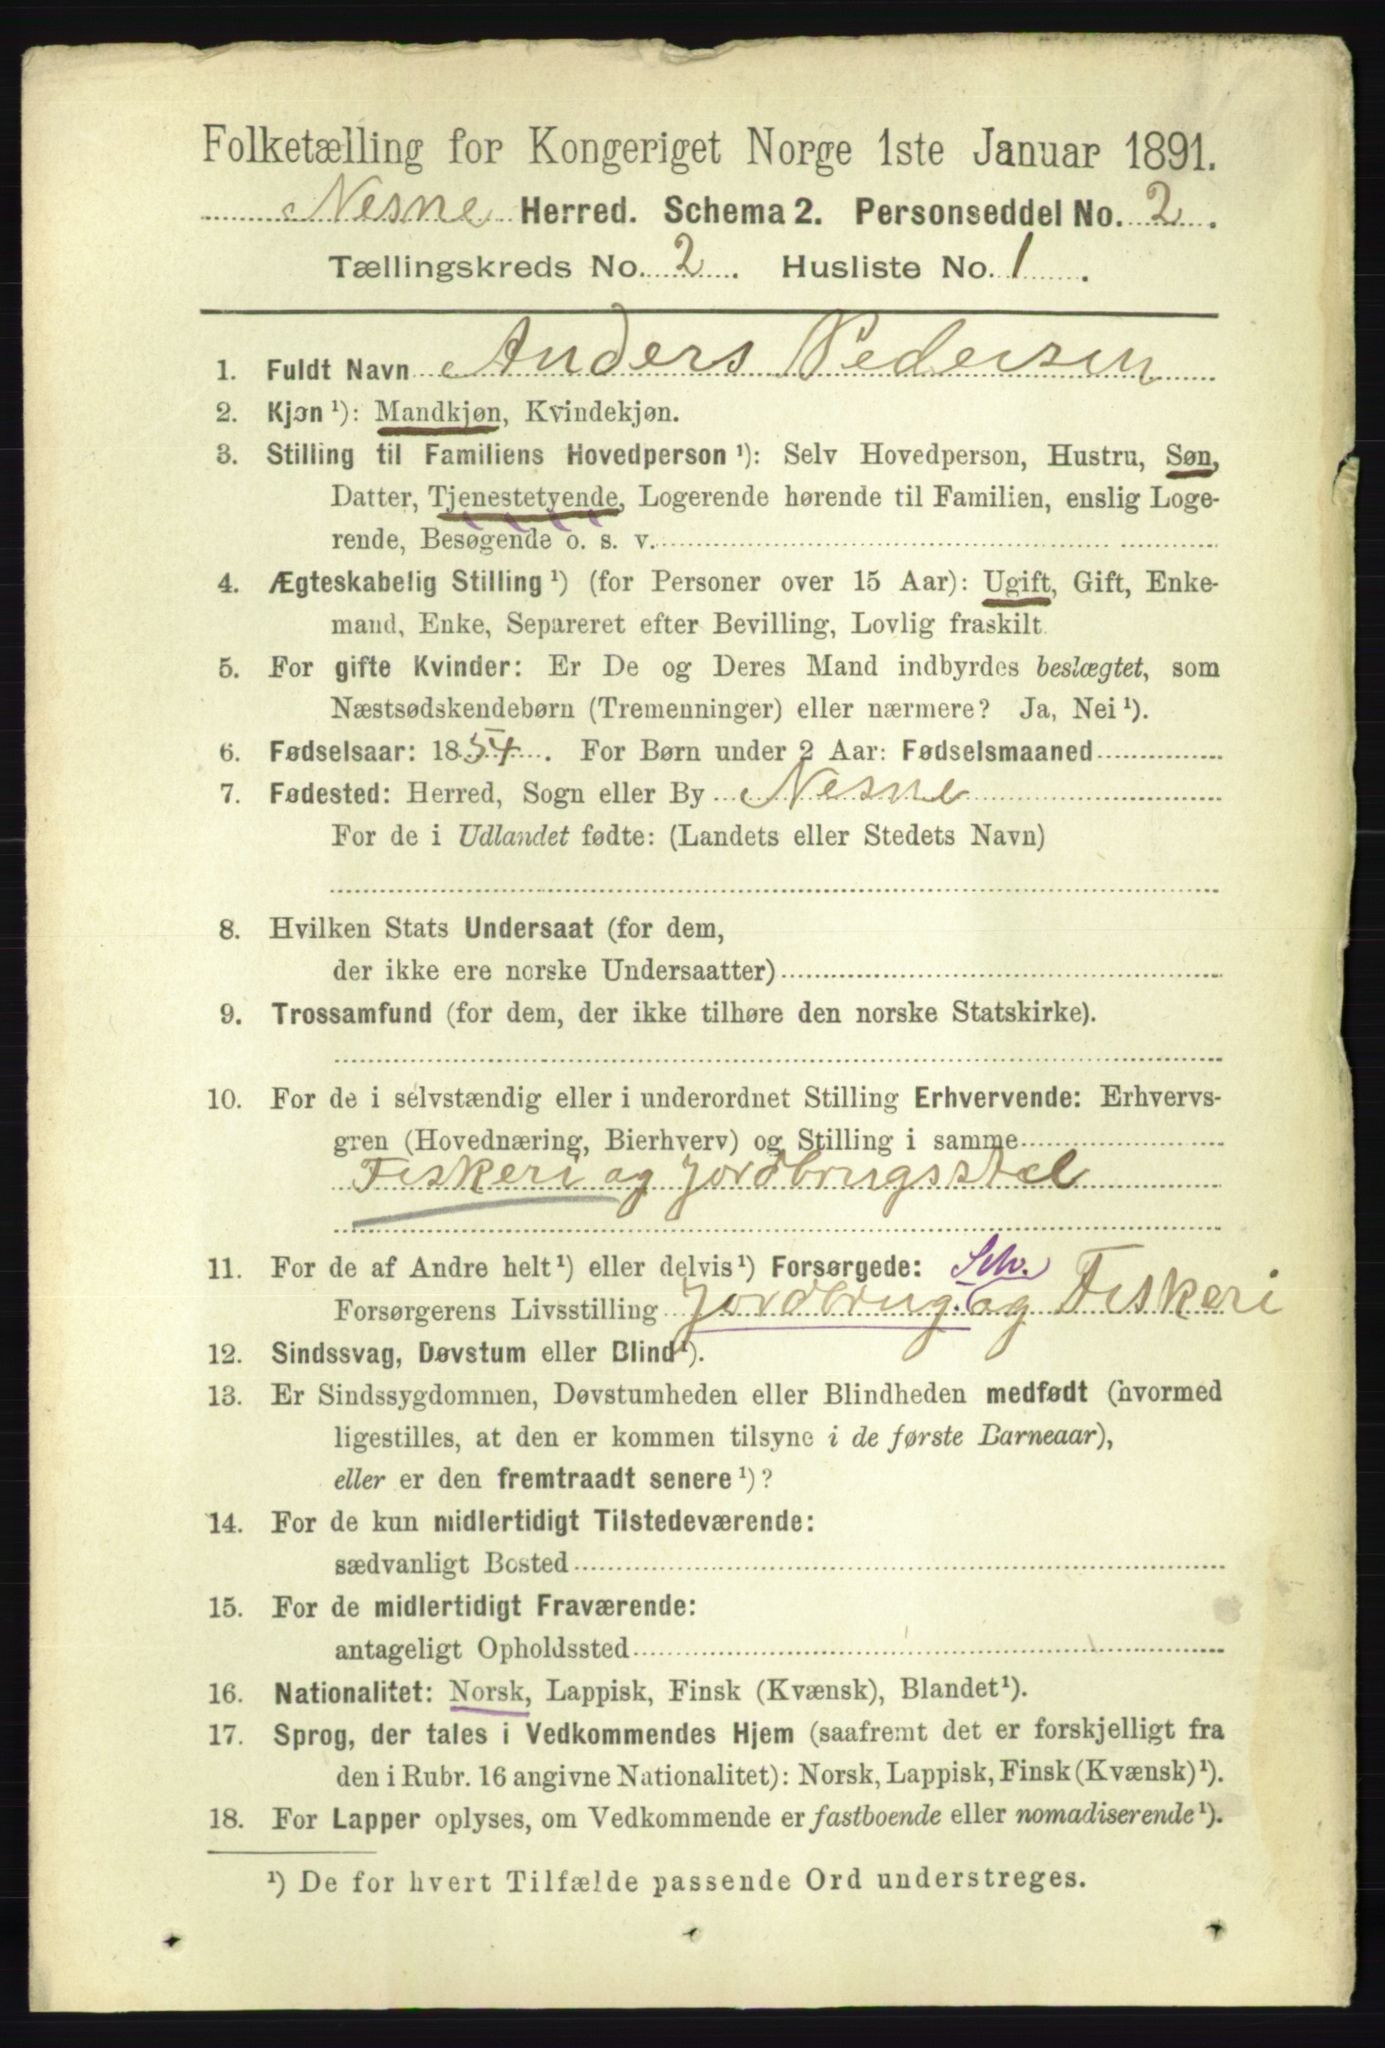 Folketælling for Kongeriget Norge 1ste Januar 1891.
Nesne Herred. Schema 2. Personseddel No. 2.
Tællingskreds No. 2. Husliste No. 1.
1. Fuldt Navn Anders Pedersen
2. Kjøn ¹): Mandkjøn, Kvindekjøn.
3. Stilling til Familiens Hovedperson ¹): Selv Hovedperson, Hustru, Søn,
Datter, Tjenestetyende, Logerende hørende til Familien, enslig Loge-
rende, Besøgende o. s. v.
4. Ægteskabelig Stilling ¹) (for Personer over 15 Aar): Ugift, Gift, Enke-
mand, Enke, Separeret efter Bevilling, Lovlig fraskilt
5. For gifte Kvinder: Er De og Deres Mand indbyrdes beslægtet, som
Næstsødskendebørn (Tremenninger) eller nærmere? Ja, Nei ¹).
6. Fødselsaar: 1854. For Børn under 2 Aar: Fødselsmaaned
7. Fødested: Herred, Sogn eller By Nesne
For de i Udlandet fødte: (Landets eller Stedets Navn)
8. Hvilken Stats Undersaat (for dem,
der ikke ere norske Undersaatter)
9. Trossamfund (for dem, der ikke tilhøre den norske Statskirke).
10. For de i selvstændig eller i underordnet Stilling Erhvervende: Erhvervs-
gren (Hovednæring, Bierhverv) og Stilling i samme
Fiskeri og Jordbrugsstel
11. For de af Andre helt ¹) eller delvis ¹) Forsørgede: Selv.
Forsørgerens Livsstilling Jordbrug. og Fiskeri
12. Sindssvag, Døvstum eller Blind ¹).
13. Er Sindssygdommen, Døvstumheden eller Blindheden medfødt (hvormed
ligestilles, at den er kommen tilsyne i de første Barneaar),
eller er den fremtraadt senere ¹)?
14. For de kun midlertidigt Tilstedeværende:
sædvanligt Bosted
15. For de midlertidigt Fraværende:
antageligt Opholdssted
16. Nationalitet: Norsk, Lappisk, Finsk (Kvænsk), Blandet ¹).
17. Sprog, der tales i Vedkommendes Hjem (saafremt det er forskjelligt fra
den i Rubr. 16 angivne Nationalitet): Norsk, Lappisk, Finsk (Kvænsk) ¹).
18. For Lapper oplyses, om Vedkommende er fastboende eller nomadiserende ¹).
¹) De for hvert Tilfælde passende Ord understreges.